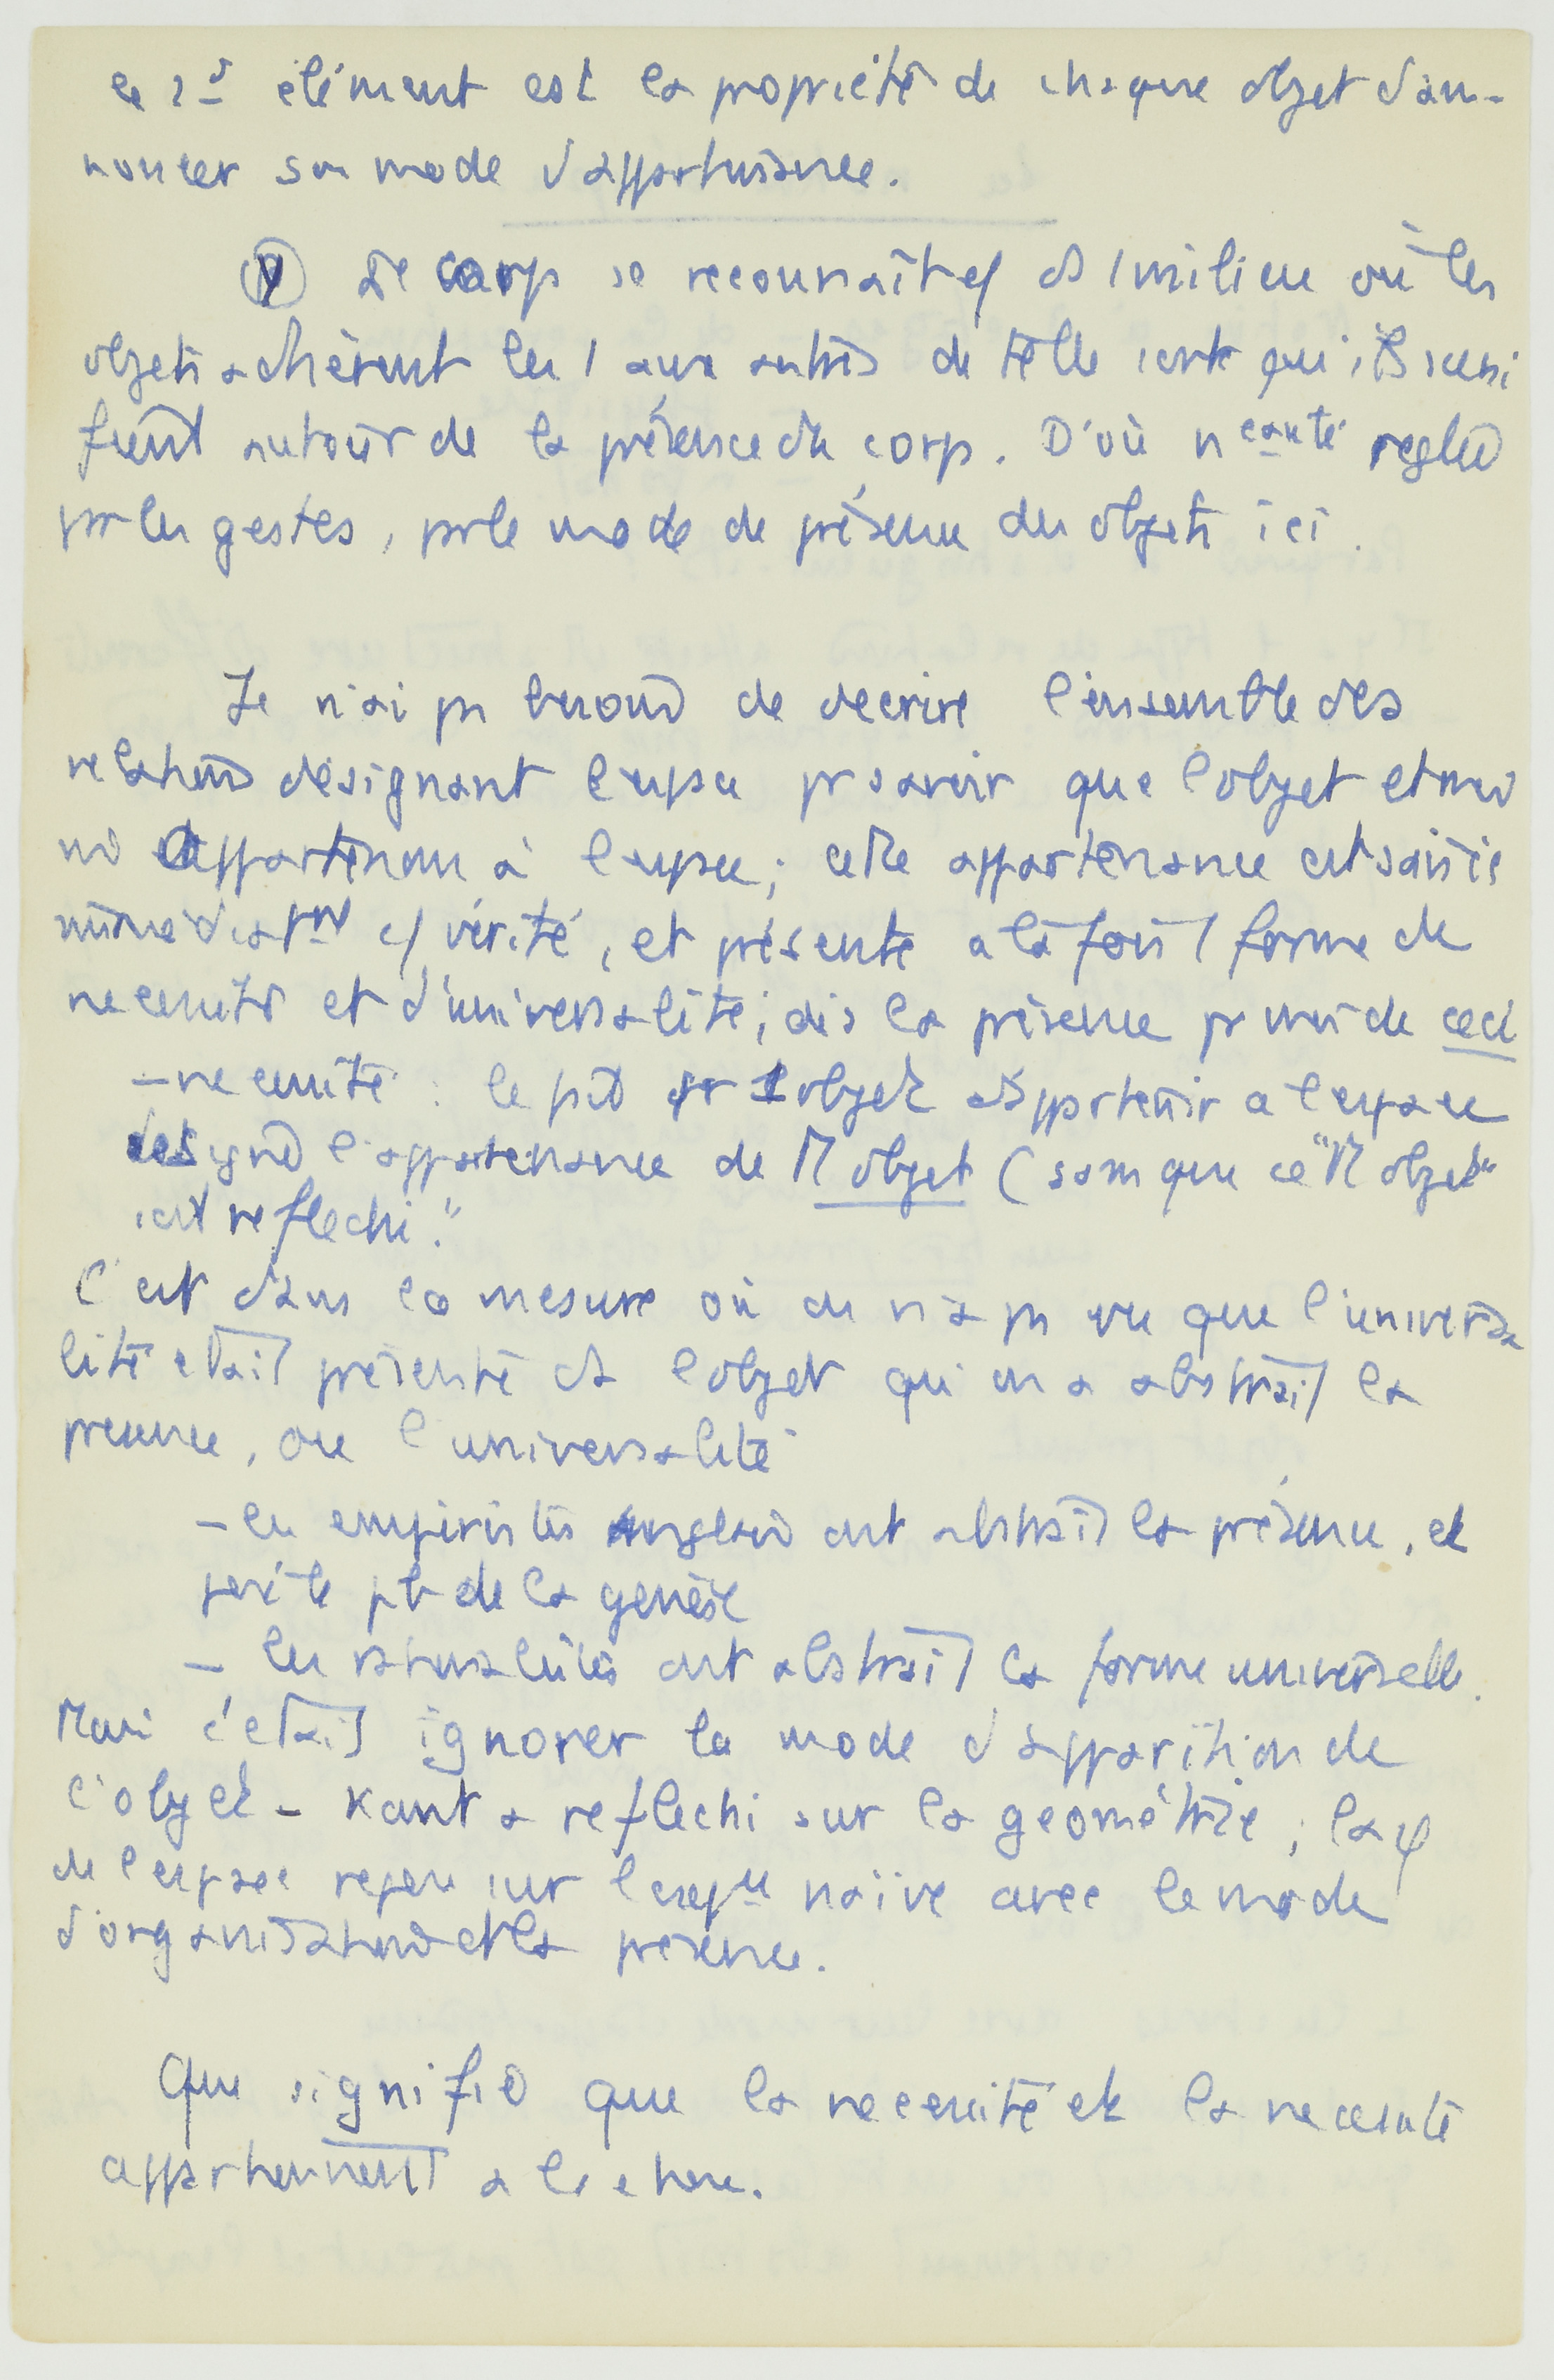 le 2d élément est la propriété de chaque objet d'an-
noncer son mode d'appartenance.
γ) Le corps se reconnaît cf ds 1 milieu où les
objets adhèrent les 1 aux autres de telle sorte qu'ils signi
fient autour de la présence du corps. D'où néante réglée
par les gestes, par le mode de présence des objets ici.
Je n'ai pas besoin de décrire l'ensemble des
relations désignant l'espace pr savoir que l'objet et moi
ns appartenons à l'espace ; cette appartenance est saisie
immédiatmt cf vérité, et présente a la fois 1 forme de
necessité et d'universalité ; dès la présence pr moi de ceci
– necessité : le fait pr 1 objet d'appartenir a l'espace
designe l'appartenance de M objet (sans que ce "M objet"
soit reflechi."
C'est dans la mesure où on n'a pas vu que l'universa
lité etait présente ds l'objet qu'on a abstrait la
presence, ou l'universalité
– les empiristes anglais ont abstrait la présence, et
posé le pb de la genèse
– les rationalistes ont abstrait la forme universelle.
Mais c'etait ignorer le mode d'apparition de
l'objet – Kant a reflechi sur la geométrie ; la φ
de l'espace repose sur l'expce naïve avec le mode
d'organisation et la presence.
Que signifie que la necessité et la necessité
appartiennent a la chose.